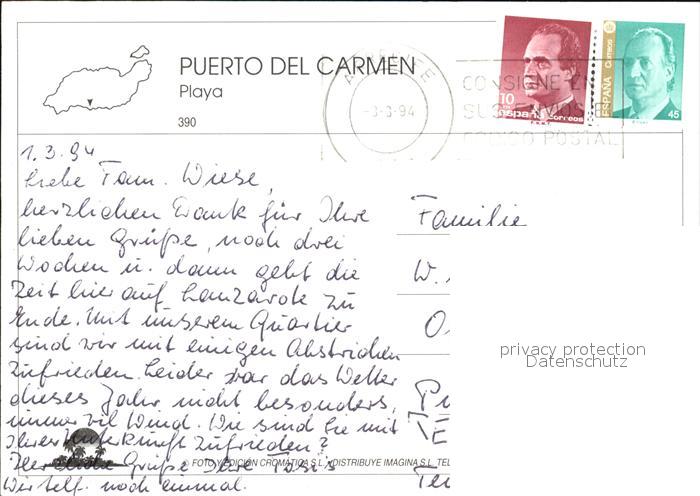 PUERTO DEL CARMEN
Playa
390
ARRECIFE
-3-3-94
CONSIGNE EN
SUS ENVIOS EL
CODIGO POSTAL
10
españa Correos
ESPAÑA Correos
45
1.3.94
Liebe Fam. Wiese,
herzlichen Dank für Ihre
lieben Grüße, noch drei
Wochen u. dann geht die
Zeit hier auf Lanzarote zu
Ende. Mit unserem Quartier
sind wir mit einigen Abstrichen
zufrieden. Leider war das Wetter
dieses Jahr nicht besonders,
immer viel Wind. Wie sind Sie mit
Ihrer Unterkunft zufrieden?
Herzliche Grüße Ihre
noch einmal.
Familie
W.
privacy protection
Datenschutz
© FOTO Y EDICIÓN CROMATICA S.L. DISTRIBUYE IMAGINA S.L. TEL